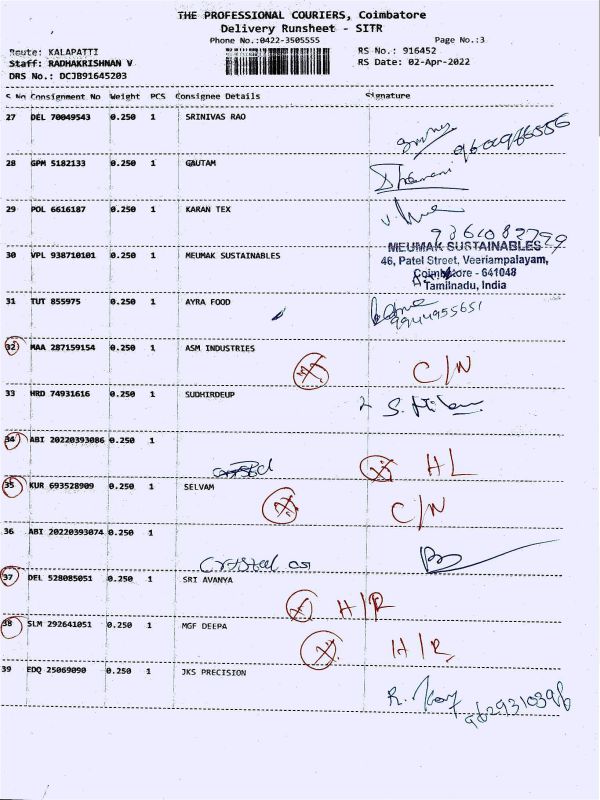 THE PROFESSIONAL COURIERS, Coimbatore
Delivery Runsheet - SITR
Phone No.:0422-3505555 Page No.:3
Route: KALAPATTI RS No.: 916452
Staff: RADHAKRISHNAN V RS Date: 02-Apr-2022
DRS No.: DCJB91645203
S No Consignment No Weight PCS Consignee Details Signature
27 DEL 70049543 0.250 1 SRINIVAS RAO
28 GPM 5182133 0.250 1 GAUTAM
29 POL 6616187 0.250 1 KARAN TEX
30 VPL 938710101 0.250 1 MEUMAK SUSTAINABLES
MEUMAK SUSTAINABLES
46, Patel Street, Veeriampalayam,
Coimbatore - 641048
Tamilnadu, India
31 TUT 855975 0.250 1 AYRA FOOD
9944955651
32 MAA 287159154 0.250 1 ASM INDUSTRIES
C/N
33 HRD 74931616 0.250 1 SUDHIRDEUP
34 ABI 20220393086 0.250 1
HL
35 KUR 693528909 0.250 1 SELVAM
C/N
36 ABI 20220393074 0.250 1
37 DEL 528085051 0.250 1 SRI AVANYA
H/R
38 SLM 292641051 0.250 1 MGF DEEPA
H/R
39 EDQ 25069090 0.250 1 JKS PRECISION